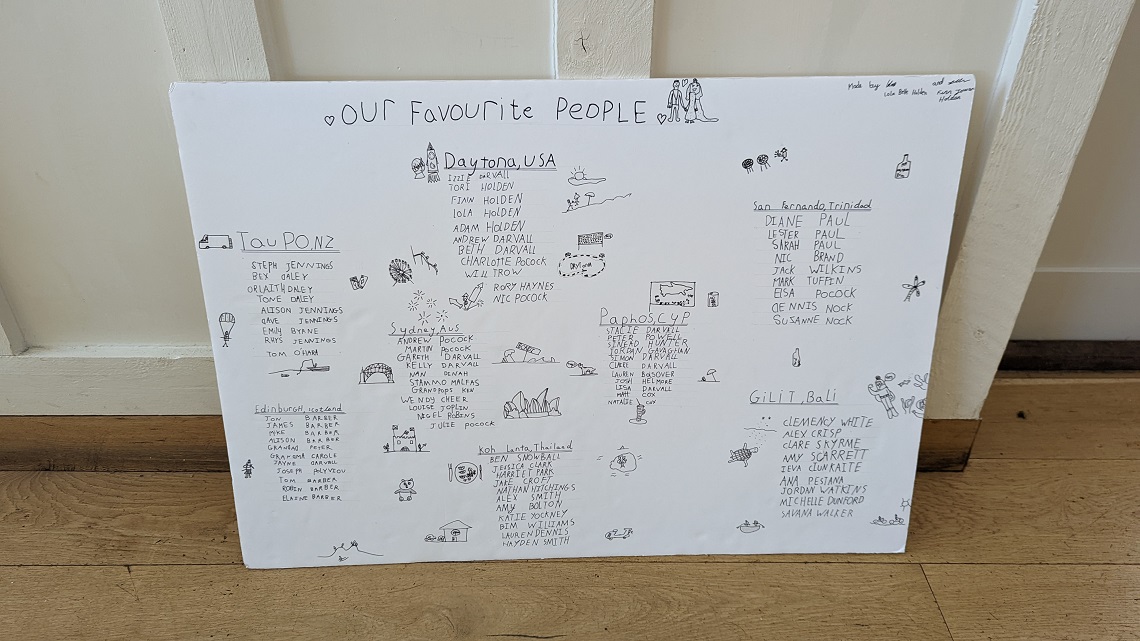 OUR FAVOURITE PEOPLE
Made by and
Lola Beth Holden
Holden
Daytona, USA
IZZIE DARVALL
TORI HOLDEN
FINN HOLDEN
LOLA HOLDEN
ADAM HOLDEN
ANDREW DARVALL
BETH DARVALL
CHARLOTTE POCOCK
WILL TROW
RORY HAYNES
NIC POCOCK
San Fernando, Trinidad
DIANE PAUL
LESTER PAUL
SARAH PAUL
NIC BRAND
JACK WILKINS
MARK TUFFIN
ELSA POCOCK
DENNIS NOCK
SUSANNE NOCK
TauPO, NZ
STEPH JENNINGS
BEX DALEY
ORLAITH DALEY
TONE DALEY
ALISON JENNINGS
DAVE JENNINGS
EMILY BYRNE
RHYS JENNINGS
TOM O'HARA
Sydney, Aus
ANDREW POCOCK
MARTIN POCOCK
GARETH DARVALL
KELLY DARVALL
NAN
STAMMO MALFAS
GRANDPOPS KEN
WENDY CHEER
LOUISE JOPLIN
NIGEL ROBINS
JULIE POCOCK
Paphos, CYP
STACIE DARVALL
PETER POWELL
SINEAD HUNTER
JORDAN GAVAGHAN
SIMON DARVALL
CLAIRE DARVALL
LAUREN BOLSOVER
JOSH HELMORE
LISA DARVALL
MATT COX
NATALIE COX
Edinburgh, Scotland
JON BARBER
JAMES BARBER
MIKE BARBER
ALISON BARBER
GRANDAD PETER
GRANDMA CAROLE
JAYNE DARVALL
JOSEPH POLYVIOU
TOM BARBER
ROBIN BARBER
ELAINE BARBER
Koh Lanta, Thailand
BEN SNOWBALL
JESSICA CLARK
HARRIET PARK
JAKE CROFT
NATHAN HITCHINGS
ALEX SMITH
AMY BOLTON
KATIE YOCKNEY
BIM WILLIAMS
LAUREN DENNIS
HAYDEN SMITH
Gili T, Bali
CLEMENCY WHITE
ALEX CRISP
CLARE SKYRME
AMY SCARRETT
IEVA CIUNKAITE
ANA PESTANA
JORDAN WATKINS
MICHELLE DUNFORD
SAVANA WALKER